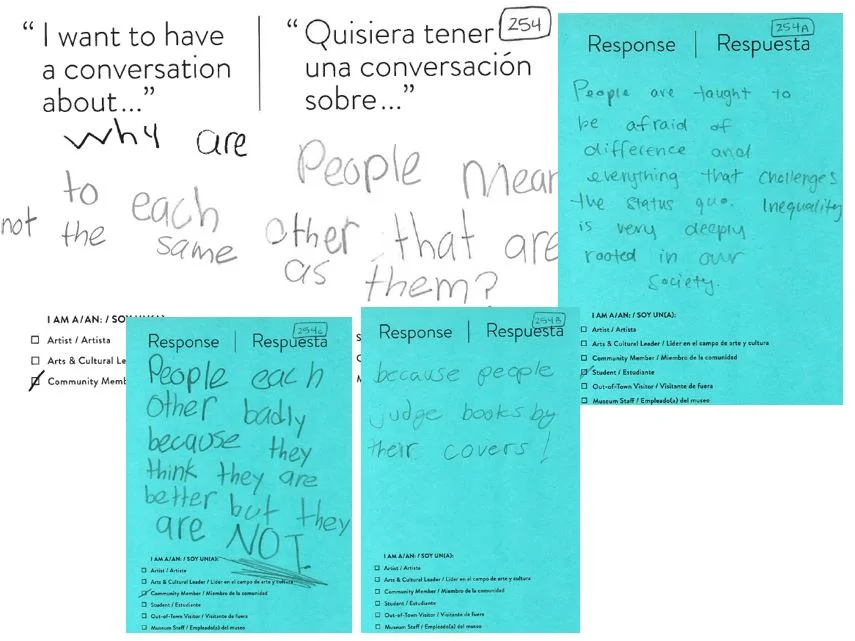 “I want to have
a conversation
about...”
“Quisiera tener
una conversación
sobre...”
254
Why are People Mean
to each other that are
not the same as them?
I AM A/AN: / SOY UN(A):
Artist / Artista
Arts & Cultural Le
Community Memb
254A
Response | Respuesta
People are taught to
be afraid of
difference and
everything that challenges
the status quo. Inequality
is very deeply
rooted in our
Society.
I AM A/AN: / SOY UN(A):
Artist / Artista
Arts & Cultural Leader / Líder en el campo de arte y cultura
Community Member / Miembro de la comunidad
Student / Estudiante
Out-of-Town Visitor / Visitante de fuera
Museum Staff / Empleado(a) del museo
254B
Response | Respuesta
because people
judge books by
their covers!
I AM A/AN: / SOY UN(A):
Artist / Artista
Arts & Cultural Leader / Líder en el campo de arte y cultura
Community Member / Miembro de la comunidad
Student / Estudiante
Out-of-Town Visitor / Visitante de fuera
Museum Staff / Empleado(a) del museo
254C
Response | Respuesta
People each
other badly
because they
think they are
better but they
are NOT.
I AM A/AN: / SOY UN(A):
Artist / Artista
Arts & Cultural Leader / Líder en el campo de arte y cultura
Community Member / Miembro de la comunidad
Student / Estudiante
Out-of-Town Visitor / Visitante de fuera
Museum Staff / Empleado(a) del museo